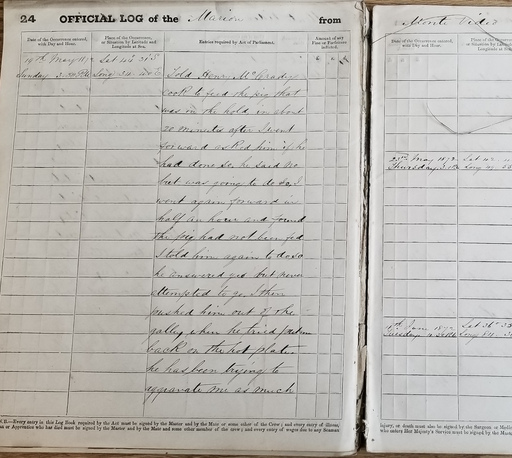 24 OFFICIAL LOG of the Marion from
Date of the Occurrence entered, with Day and Hour.
Place of the Occurrence, or Situation by Latitude and Longitude at Sea.
Entries required by Act of Parliament.
Amount of any Fine or Forfeiture inflicted.
19th May 1872 Lat 44 31 S
Sunday Long 32 Told Henr McCradig
cook to feed the pig that
was in the hold in about
20 minutes after I went
forward asked him if he
had done so, he said no
but was going to do so, I
went again forward in
half an hour and found
the pig had not been fed
I told him again to do so
he answered yes but never
attempted to go, I then
pushed him out of the
galley, when he threw
back on the hot plates
he has been trying to
aggravate me as much
N.B.—Every entry in this Log Book required by the Act must be signed by the Master and by the Mate or some other of the Crew; and every entry of illness,
or Apprentice who has died must be signed by the Master and by the Mate and some other member of the crew; and every entry of wages due to any Seaman
Monte Video
Date of the Occurrence entered, with Day and Hour.
23rd May 1872 Lat 42
Thursday Long
4th June 1872 Lat 36
Tuesday 4.30 PM Long
injury, or death must also be signed by the Surgeon, or Medical
who enters Her Majesty's Service must be signed by the Master